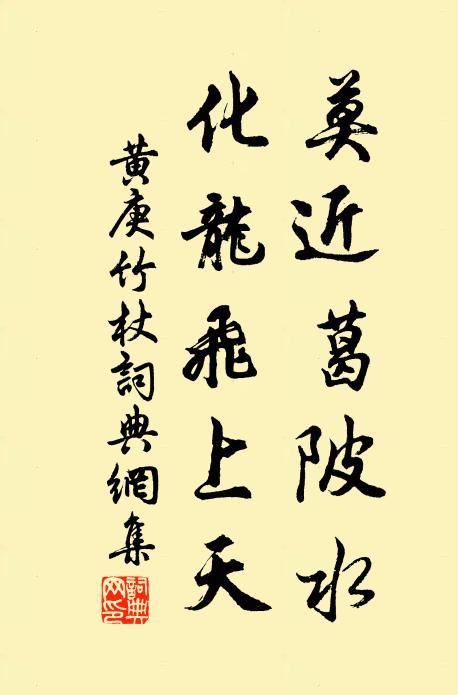 莫近葛陂水
化龍飛上天
黃庚竹杖詞典網集
詞典網印